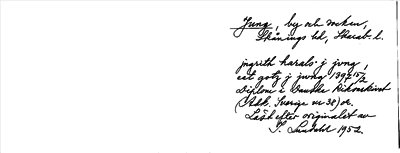 Jung, by och socken,
Skånings hd, Skarab. l.
jngrith harals j jvng,
eet gotz j jwng 1397 15/2
diplom i Danske Riksarkivet
(Adk. Sverige nr 38) or.
Läst efter originalet av
S. 1952.